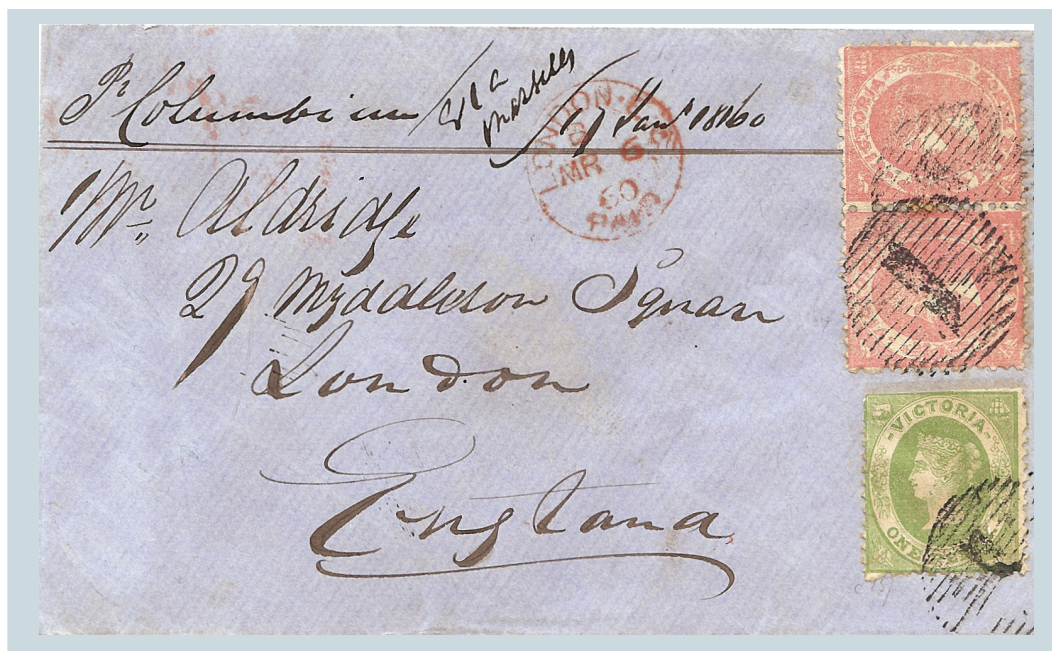 Pr Columbian / Via Marseilles / 17 Jany 1860
LONDON
MR 6
60
PAID
Mr Aldridge
29 Myddleton Square
London
England
VICTORIA
1
VICTORIA
ONE
1